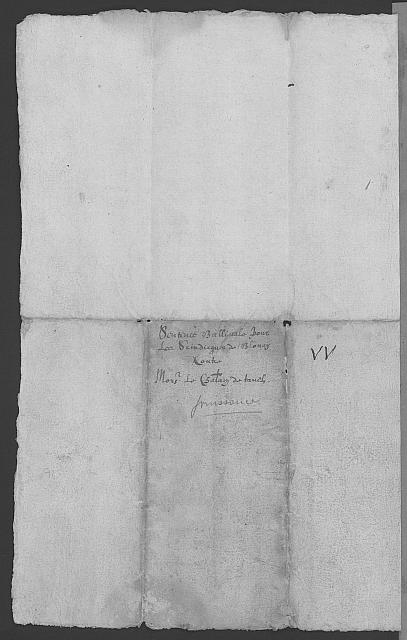 Sentence Ballivale pour
Les Scindicques de Blonay
Contre
Monsr Le Chastelain de
Jouissance
VV